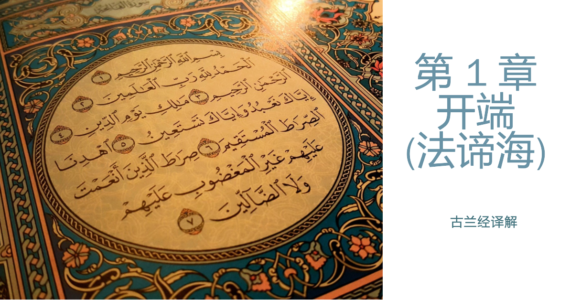 بِسْمِ اللَّهِ الرَّحْمَٰنِ الرَّحِيمِ ١
الْحَمْدُ لِلَّهِ رَبِّ الْعَالَمِينَ ٢
الرَّحْمَٰنِ الرَّحِيمِ ٣ مَلِكِ يَوْمِ الدِّينِ ٤
إِيَّاكَ نَعْبُدُ وَإِيَّاكَ نَسْتَعِينُ ٥ اهْدِنَا
الصِّرَاطَ الْمُسْتَقِيمَ ٦ صِرَاطَ الَّذِينَ أَنْعَمْتَ
عَلَيْهِمْ غَيْرِ الْمَغْضُوبِ عَلَيْهِمْ
وَلَا الضَّالِّينَ ٧
第 1 章
开端
(法谛海)
古兰经译解